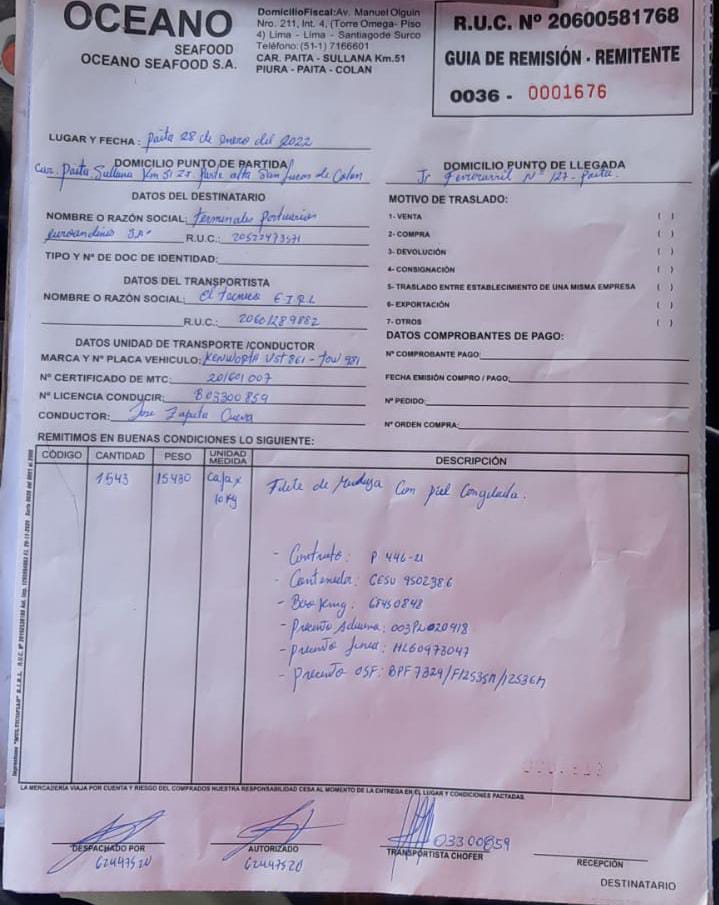 OCEANO
SEAFOOD
OCEANO SEAFOOD S.A.
DomicilioFiscal:Av. Manuel Olguin
Nro. 211, Int. 4, (Torre Omega- Piso
4) Lima - Lima - Santiagode Surco
Teléfono:(51-1) 7166601
CAR. PAITA - SULLANA Km.51
PIURA - PAITA - COLAN
R.U.C. Nº 20600581768
GUIA DE REMISIÓN - REMITENTE
0036 - 0001676
LUGAR Y FECHA: Paita 28 de enero del 2022
DOMICILIO PUNTO DE PARTIDA
Car. Paita Sullana Km 51 Parte alta San Lucas de Colan
DOMICILIO PUNTO DE LLEGADA
Jr Ferrocarril Nº 127- Paita.
DATOS DEL DESTINATARIO
NOMBRE O RAZÓN SOCIAL: Terminales Portuarios
Euroandinos R.U.C.: 20522473571
TIPO Y Nº DE DOC DE IDENTIDAD:
MOTIVO DE TRASLADO:
1- VENTA ( )
2- COMPRA ( )
3- DEVOLUCIÓN ( )
4- CONSIGNACIÓN ( )
5- TRASLADO ENTRE ESTABLECIMIENTO DE UNA MISMA EMPRESA ( )
6- EXPORTACIÓN ( )
7- OTROS ( )
DATOS DEL TRANSPORTISTA
NOMBRE O RAZÓN SOCIAL: El E.I.R.L
R.U.C.: 20601289882
DATOS UNIDAD DE TRANSPORTE /CONDUCTOR
MARCA Y Nº PLACA VEHICULO: KENWORTH V5T861 - 981
Nº CERTIFICADO DE MTC: 201601007
Nº LICENCIA CONDUCIR: B03300859
CONDUCTOR: Jose Zapata Cueva
DATOS COMPROBANTES DE PAGO:
Nº COMPROBANTE PAGO:
FECHA EMISIÓN COMPRO / PAGO:
Nº PEDIDO:
Nº ORDEN COMPRA:
REMITIMOS EN BUENAS CONDICIONES LO SIGUIENTE:
CÓDIGO CANTIDAD PESO UNIDAD MEDIDA DESCRIPCIÓN
1543 15430 Caja x 10 Kg Filete de Merluza Con piel Congelada.
- Contrato: P 446-21
- Contenedor: CESU 9502386
- Booking: 65450848
- Precinto Aduana: 003PL020418
- Precinto Linea: HL60973047
- Precinto OSF: BPF 7329/F12535M/12536M
LA MERCADERÍA VIAJA POR CUENTA Y RIESGO DEL COMPRADOS NUESTRA RESPONSABILIDAD CESA AL MOMENTO DE LA ENTREGA EN EL LUGAR Y CONDICIONES PACTADAS.
DESPACHADO POR
62447520
AUTORIZADO
62447520
03300859
TRANSPORTISTA CHOFER
RECEPCIÓN
DESTINATARIO